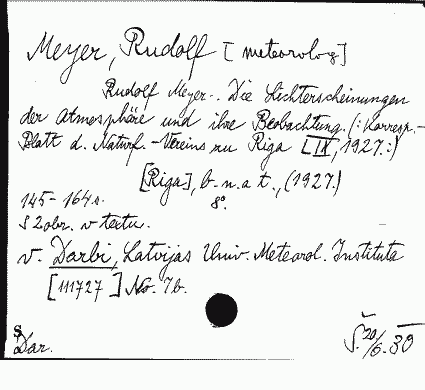 Meyer, Rudolf [meteorolog]
Rudolf Meyer.. Die Lichterscheinungen
der Atmosphäre und ihre Beobachtung. (: Korresp.-
Blatt d. Naturf.-Vereins zu Riga [IX, 1927.:)
[Riga], b. n. a t., (1927.)
8°.
145-164.s.
S 2 obr. v textu.
v. Darbi, Latvijas Univ. Meteorol. Instituta
[111727] No. 7b.
Dar.
20/6. 30